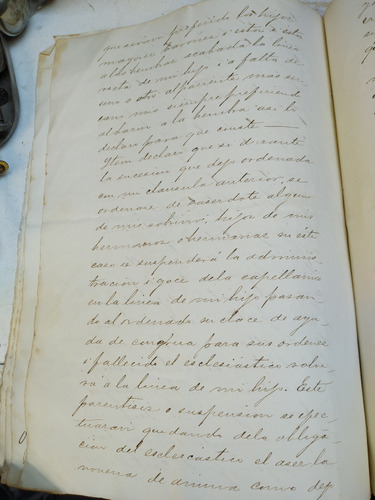 mismo preferido los hijos
mayores barones i estos a este
a las hembras i acabada la linea
recta de mi hijo i a falta de
uno u otro al pariente mas cer
cano mio siempre prefiriendo
al baron a la hembra asi lo
declaro para que conste —
Ytem declaro que si durante
la sucesion que dejo ordenada
en mi clausula anterior, se
ordenase de sacerdote alguno
de mis sobrinos, hijos de mis
hermanos o hermanas en este
caso se suspenderá la adminis
tracion i goce de la capellania
en la linea de mi hijo pasan
do al ordenado en clace de ayu
da de congrua para sus ordenes
i fallecido el esclesiástico volve
rá a la linea de mi hijo. Este
parentisis o suspension se efec
tuaran quedando de la obliga
cion del esclesiastico el aser la
novena de animas como dejo